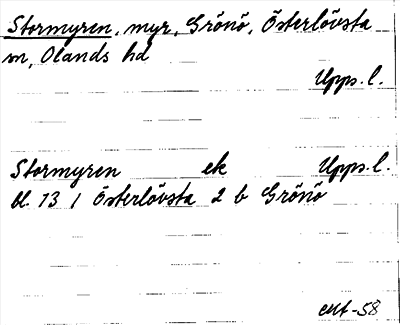 Stormyren, myr, Grönö, Österlövsta
sn, Olands hd
Upps. l.
Stormyren ek Upps. l.
bl. 13 1 Österlövsta 2 b Grönö
-58